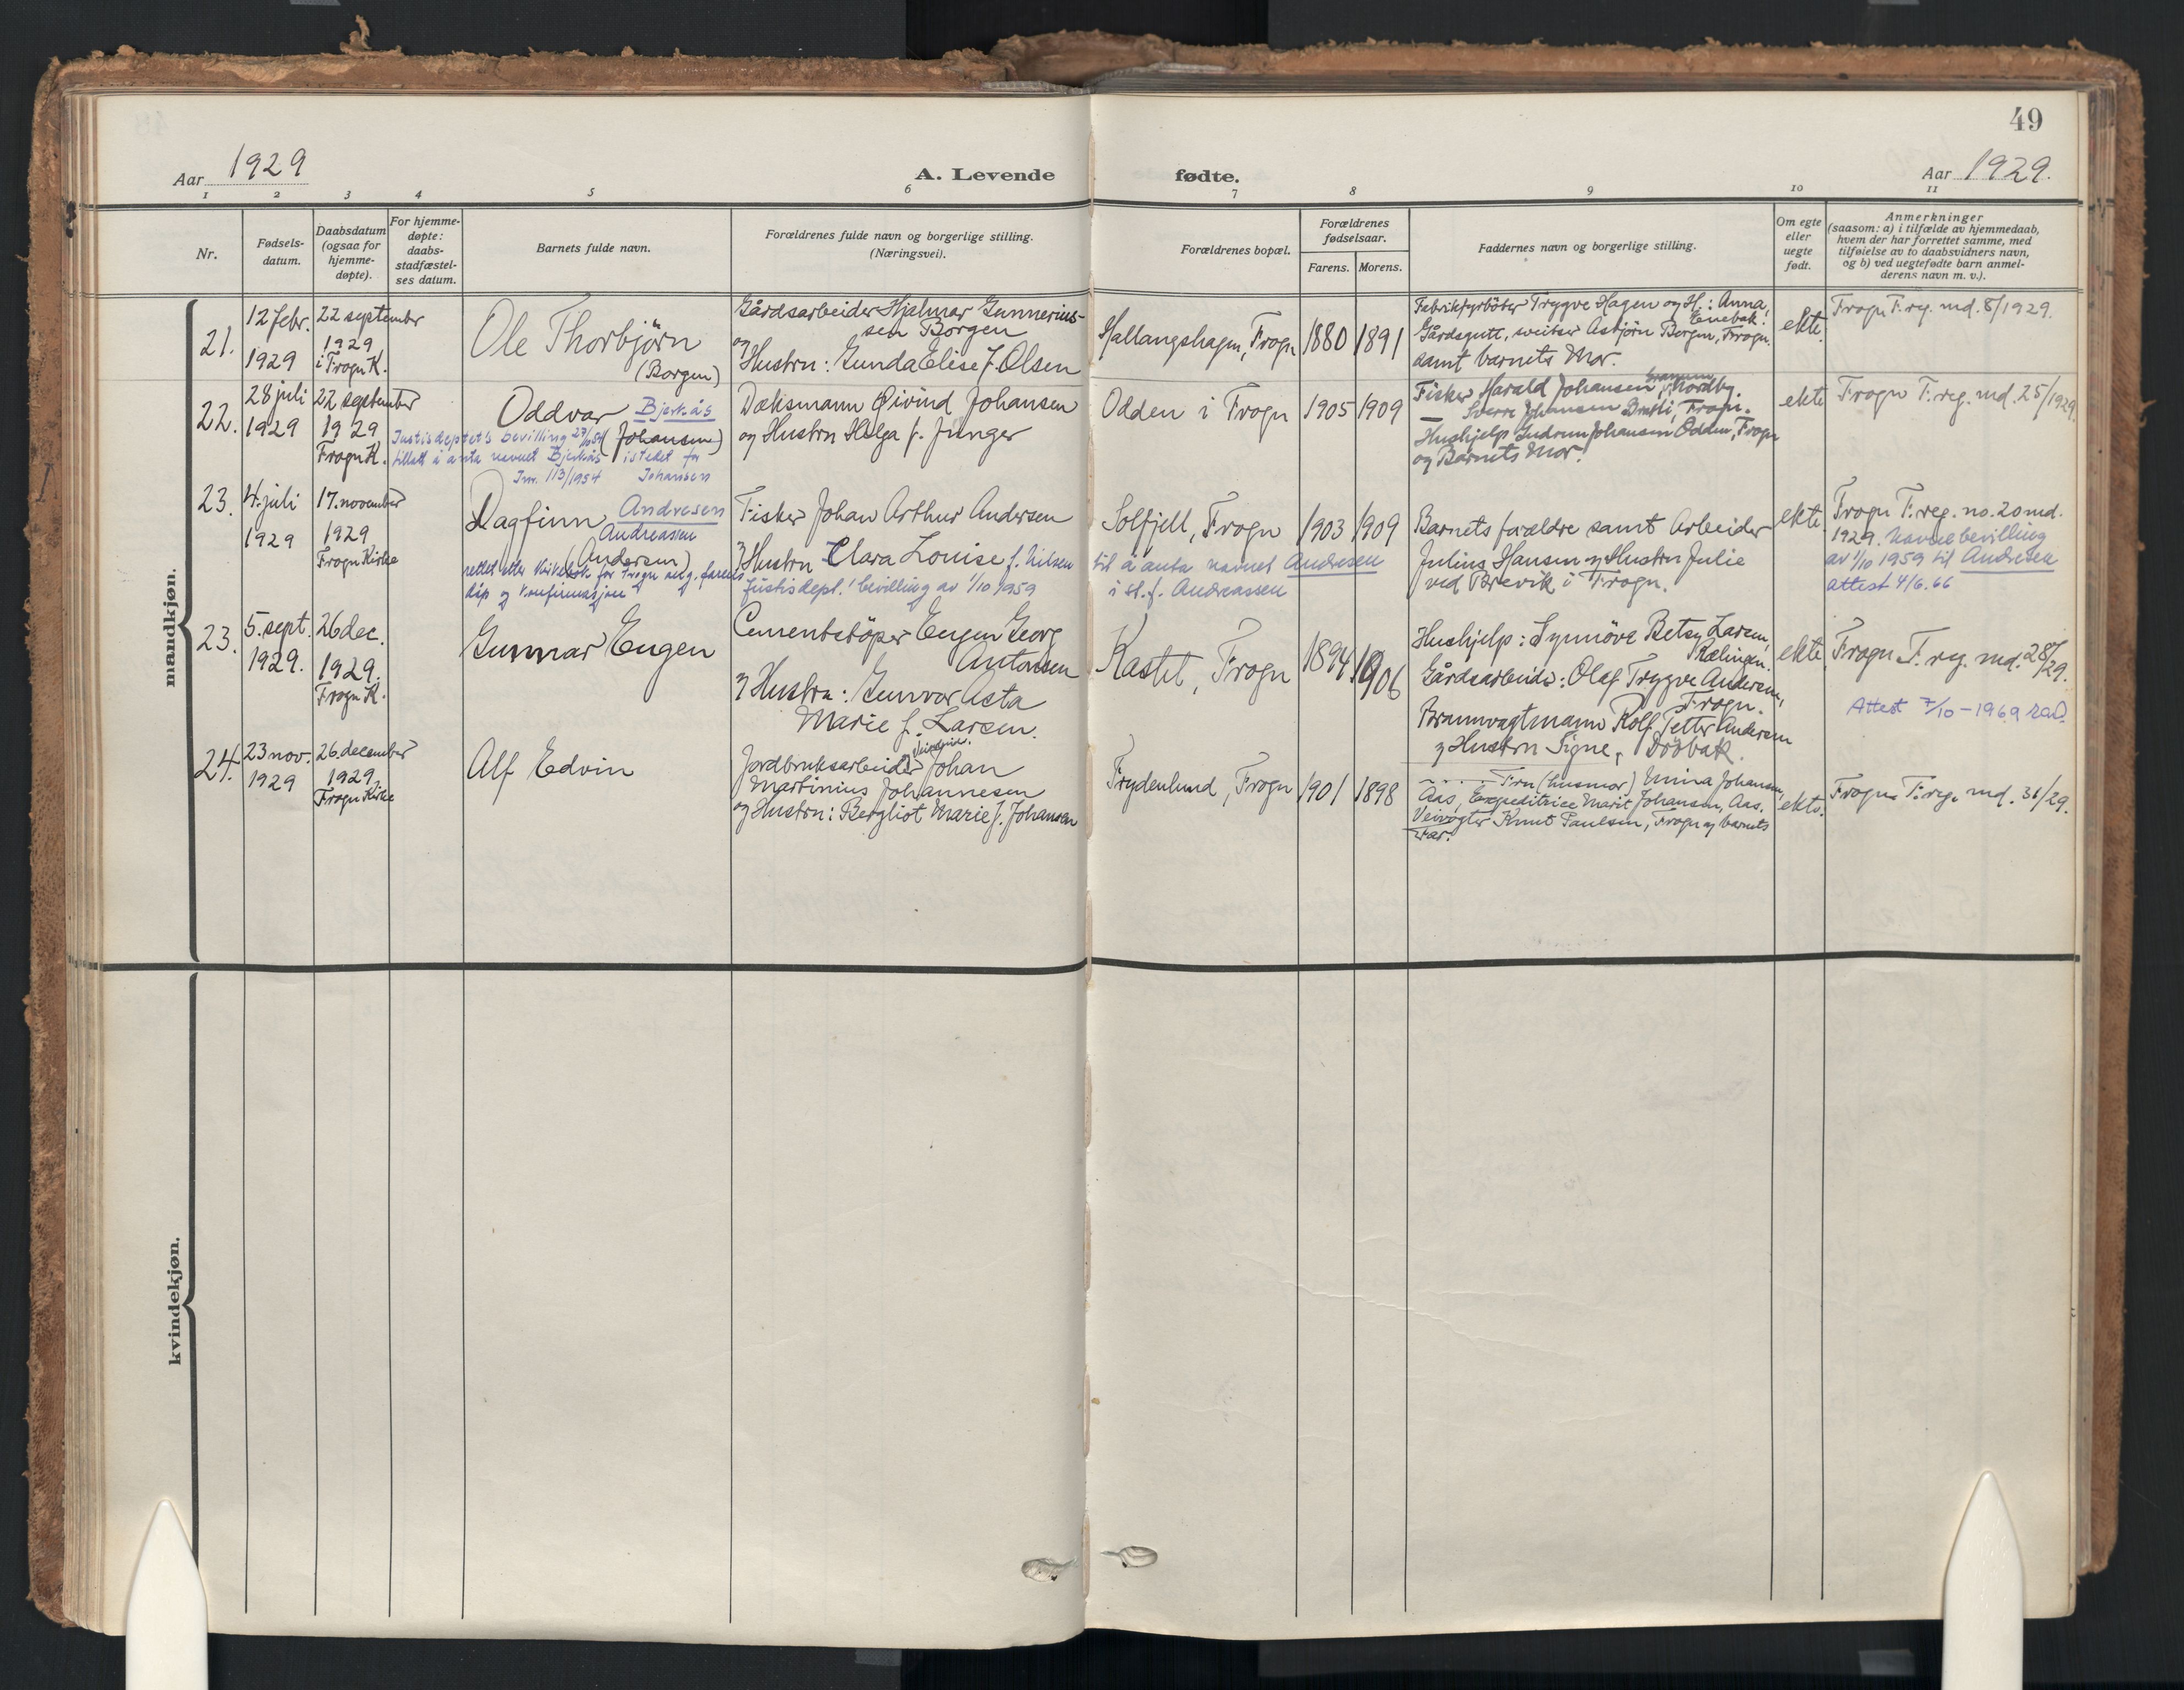 49
Aar 1929
A. Levende fødte.
Aar 1929.
1 2 3 4 5 6 7 8 9 10 11
Nr.
Fødsels-
datum.
Daabsdatum
(ogsaa for
hjemme-
døpte).
For hjemme-
døpte:
daabs-
stadfæstel-
ses datum.
Barnets fulde navn.
Forældrenes fulde navn og borgerlige stilling.
(Næringsvei).
Forældrenes bopæl.
Forældrenes
fødselsaar.
Farens. Morens.
Faddernes navn og borgerlige stilling.
Om egte
eller
uegte
født.
Anmerkninger
(saasom: a) i tilfælde av hjemmedaab,
hvem der har forrettet samme, med
tilføielse av to daabsvidners navn,
og b) ved uegtefødte barn anmel-
derens navn m. v.).
mandkjøn.
21.
12 febr.
1929
22 september
1929
i Frogn K.
Ole Thorbjörn
(Borgen)
Gårdsarbeider Hjalmar Gunnerius-
sen Borgen
og
Hustru: Gunda Elise f. Olsen
Hallangshagen, Frogn
1880
1891
Fabrikfyrböter Trygve Hagen og H.: Anna,
Enebak.
Gårdsgutt, sveitser Asbjörn Borgen, Frogn.
samt barnets Mor.
ekte.
Frogn F. reg. md. 8/1929.
22.
28 juli
1929
22 september
1929
Frogn K.
Oddvar Bjerkås
(Johansen)
Justisdeptet's bevilling 27/1 54
tillatt å anta navnet Bjerkås istedet for
Jnr. 113/1954 Johansen
Dæksmann Øivind Johansen
og Hustru Helga f. Junger
Odden i Frogn
1905
1909
Fisker Harald Johansen, Nordby.
— Sverre Johansen Bråtli, Frogn.
Hushjelp Gudrun Johansen Odden, Frogn
og Barnets Mor.
ekte
Frogn F. reg. md. 25/1929.
23.
4. juli
1929
17. november
1929
Frogn Kirke
Dagfinn Andresen
Andreassen
(Andersen)
rettet etter kirkebok for Frogn ang. farens
dåp og konfirmasjon
Fisker Johan Arthur Andersen
og Hustru Clara Louise f. Nilsen
Justisdept.! bevilling av 1/10 1959
Solfjell, Frogn
til å anta navnet Andresen
i st. f. Andreassen
1903
1909
Barnets forældre samt Arbeider
Julius Hansen og Hustru Julie
ved Brevik i Frogn.
ekte.
Frogn F. reg. no. 20 md.
1929. Navnebevilling
av 1/10 1959 til Andresen
attest 4/6.66
23.
5. sept.
1929.
26 dec.
1929.
Frogn K.
Gunnar Eugen
Cementstöper Eugen Georg
Antonsen
og Hustru: Gunvor Asta
Marie f. Larsen.
Kastet, Frogn
1894
1906
Hushjelp: Synnöve Betsy Larsen,
Rælingen.
Gårdsarbeider: Olaf Trygve Andersen,
Frogn.
Brannvagtmann Rolf Petter Andersen
og Hustru Signe, Dröbak.
ekte
Frogn F. reg. md. 28/29.
Attest 7/10 - 1969
24.
23 nov.
1929
26. december
1929.
Frogn Kirke
Alf Edvin
Jordbruksarbeider Johan
Martinius Johannesen
og Hustru: Bergliot Marie f. Johansen
Frydenlund, Frogn
1901
1898
Fru (husmor) Mina Johansen,
Aas, Expeditrice Marit Johansen, Aas.
Veivogter Knut Paulsen, Frogn og barnets
Far.
ekte.
Frogn F. reg. md. 31/29.
kvindekjøn.